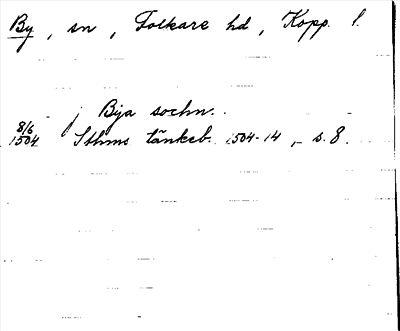 By, sn, Folkare hd, Kopp. l.
j Bya sochn.
8/6
1504 Sthms tänkeb. 1504-14, s. 8.